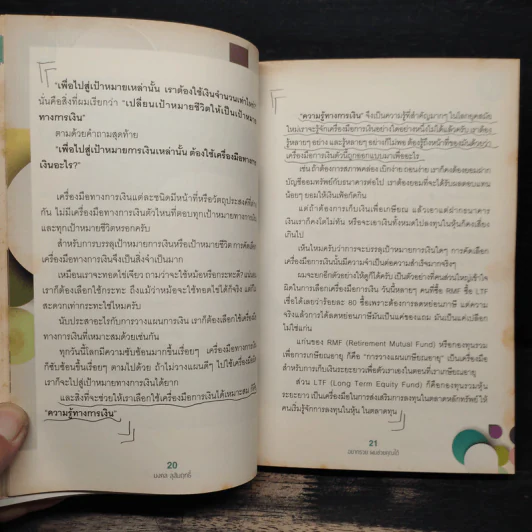 "เพื่อไปสู่เป้าหมายเหล่านั้น เราต้องใช้เงินจำนวนเท่าไหร่"
นั่นคือสิ่งที่ผมเรียกว่า "เปลี่ยนเป้าหมายชีวิตให้เป็นเป้าหมาย
ทางการเงิน"
ตามด้วยคำถามสุดท้าย
"เพื่อไปสู่เป้าหมายการเงินเหล่านั้น ต้องใช้เครื่องมือทางการ
เงินอะไร?"
เครื่องมือทางการเงินแต่ละชนิดมีหน้าที่หรือวัตถุประสงค์ที่ต่าง
กัน ไม่มีเครื่องมือทางการเงินตัวไหนที่ตอบทุกเป้าหมายทางการเงิน
และทุกเป้าหมายชีวิตหรอกครับ
สำหรับการบรรลุเป้าหมายการเงินหรือเป้าหมายชีวิต การคัดเลือก
เครื่องมือทางการเงินจึงเป็นสิ่งจำเป็นมาก
เหมือนเราจะทอดไข่เจียว ถามว่าจะใช้หม้อหรือกระทะดี? แน่นอน
เราก็ต้องเลือกใช้กระทะ ถึงแม้ว่าหม้อจะใช้ทอดไข่ได้ก็จริง แต่ก็ไม่
สะดวกเท่ากระทะใช่ไหมครับ
นับประสาอะไรกับการวางแผนการเงิน เราก็ต้องเลือกใช้เครื่องมือ
ทางการเงินที่เหมาะสมด้วยเช่นกัน
ทุกวันนี้โลกมีความซับซ้อนมากขึ้นเรื่อยๆ เครื่องมือทางการเงิน
ก็ซับซ้อนขึ้นเรื่อยๆ ตามไปด้วย ถ้าไม่วางแผนดีๆ ไปใช้เครื่องมือ
เราก็จะไปสู่เป้าหมายทางการเงินได้ยาก
และสิ่งที่จะช่วยให้เราเลือกใช้เครื่องมือการเงินได้เหมาะสม
"ความรู้ทางการเงิน"
20
"ความรู้ทางการเงิน" จึงเป็นความรู้ที่สำคัญมากๆ ในโลกยุคสมัย
ใหม่ เราจะรู้จักเครื่องมือการเงินอย่างใดอย่างหนึ่งไม่ได้แล้วครับ เราต้อง
รู้หลายๆ อย่าง และรู้หลายๆ อย่างก็ไม่พอ ต้องรู้ถึงหน้าที่ของมันด้วยว่า
เครื่องมือการเงินตัวนี้ถูกออกแบบมาเพื่ออะไร
เช่น ถ้าต้องการสภาพคล่อง เบิกง่าย ถอนง่าย เราก็คงต้องยอมฝาก
บัญชีออมทรัพย์กับธนาคารต่อไป เราต้องยอมที่จะได้รับผลตอบแทน
น้อยๆ ยอมให้เงินเฟ้อกัดกิน
แต่ถ้าต้องการเก็บเงินเพื่อเกษียณ แล้วเอาแต่ฝากธนาคาร
เงินเราก็คงโตไม่ทัน หรือจะเอาเงินทั้งหมดไปลงทุนในหุ้นก็คงเสี่ยง
เกินไป
เห็นไหมครับว่าการจะบรรลุเป้าหมายการเงินใดๆ การคัดเลือก
เครื่องมือการเงินนั้นมีความจำเป็นต่อความสำเร็จมากจริงๆ
ผมจะยกอีกตัวอย่างให้ดูก็ได้ครับ เป็นตัวอย่างที่คนส่วนใหญ่เข้าใจ
ผิดในการเลือกเครื่องมือการเงิน วันนี้หลายๆ คนที่ซื้อ RMF ซื้อ LTF
เชื่อได้เลยว่าร้อยละ 80 ซื้อเพราะต้องการลดหย่อนภาษี แต่ความ
จริงแล้วการได้ลดหย่อนภาษีมันเป็นแค่ของแถม มันเป็นแค่เปลือก
ไม่ใช่แก่น
แก่นของ RMF (Retirement Mutual Fund) หรือกองทุนรวม
เพื่อการเกษียณอายุ ก็คือ "การวางแผนเกษียณอายุ" เป็นเครื่องมือ
สำหรับการเก็บเงินระยะยาวเพื่อตัวเราเองในตอนที่เราเกษียณอายุ
ส่วน LTF (Long Term Equity Fund) ก็คือกองทุนรวมหุ้น
ระยะยาว เป็นเครื่องมือในการส่งเสริมการลงทุนในตลาดหลักทรัพย์ ให้
คนเริ่มรู้จักการลงทุนในหุ้น ในตลาดทุน
21